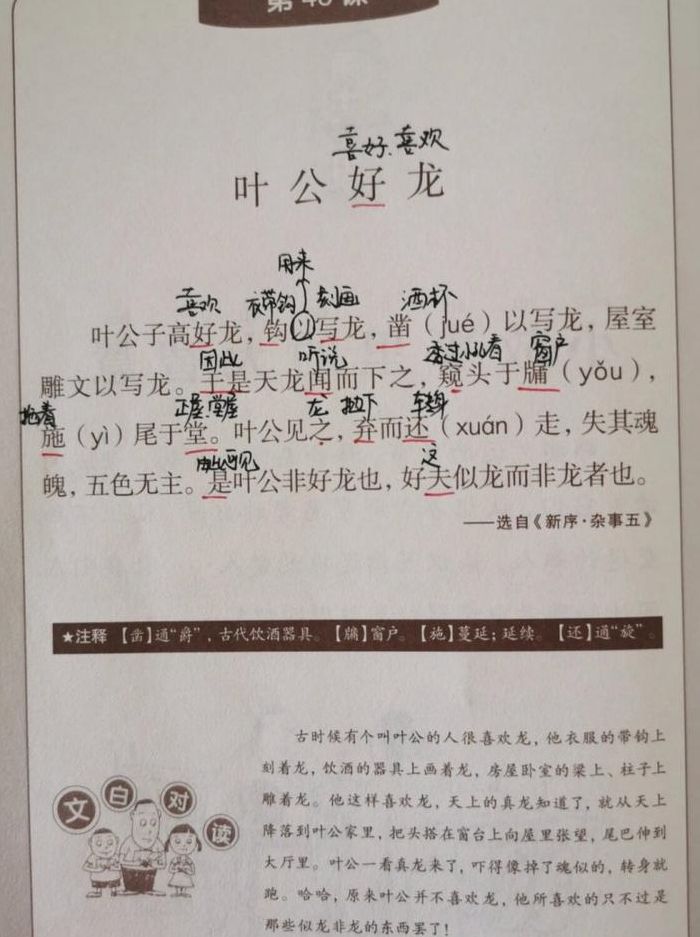 第40课
喜好、喜欢
叶公好龙
用来
喜欢 衣带钩 刻画 酒杯
叶公子高好龙，钩以写龙，凿（jué）以写龙，屋室
因此 听说 窗户
雕文以写龙。于是天龙闻而下之，窥头于牖（yǒu），
拖着 正屋 堂屋 龙 抛下 转身
施（yì）尾于堂。叶公见之，弃而还（xuán）走，失其魂
由此可见 这
魄，五色无主。是叶公非好龙也，好夫似龙而非龙者也。
——选自《新序·杂事五》
★注释 【凿】通“爵”，古代饮酒器具。【牖】窗户。【施】蔓延；延续。【还】通“旋”。
文白对读
古时候有个叫叶公的人很喜欢龙，他衣服的带钩上
刻着龙，饮酒的器具上画着龙，房屋卧室的梁上、柱子上
雕着龙。他这样喜欢龙，天上的真龙知道了，就从天上
降落到叶公家里，把头搭在窗台上向屋里张望，尾巴伸到
大厅里。叶公一看真龙来了，吓得像掉了魂似的，转身就
跑。哈哈，原来叶公并不喜欢龙，他所喜欢的只不过是
那些似龙非龙的东西罢了！